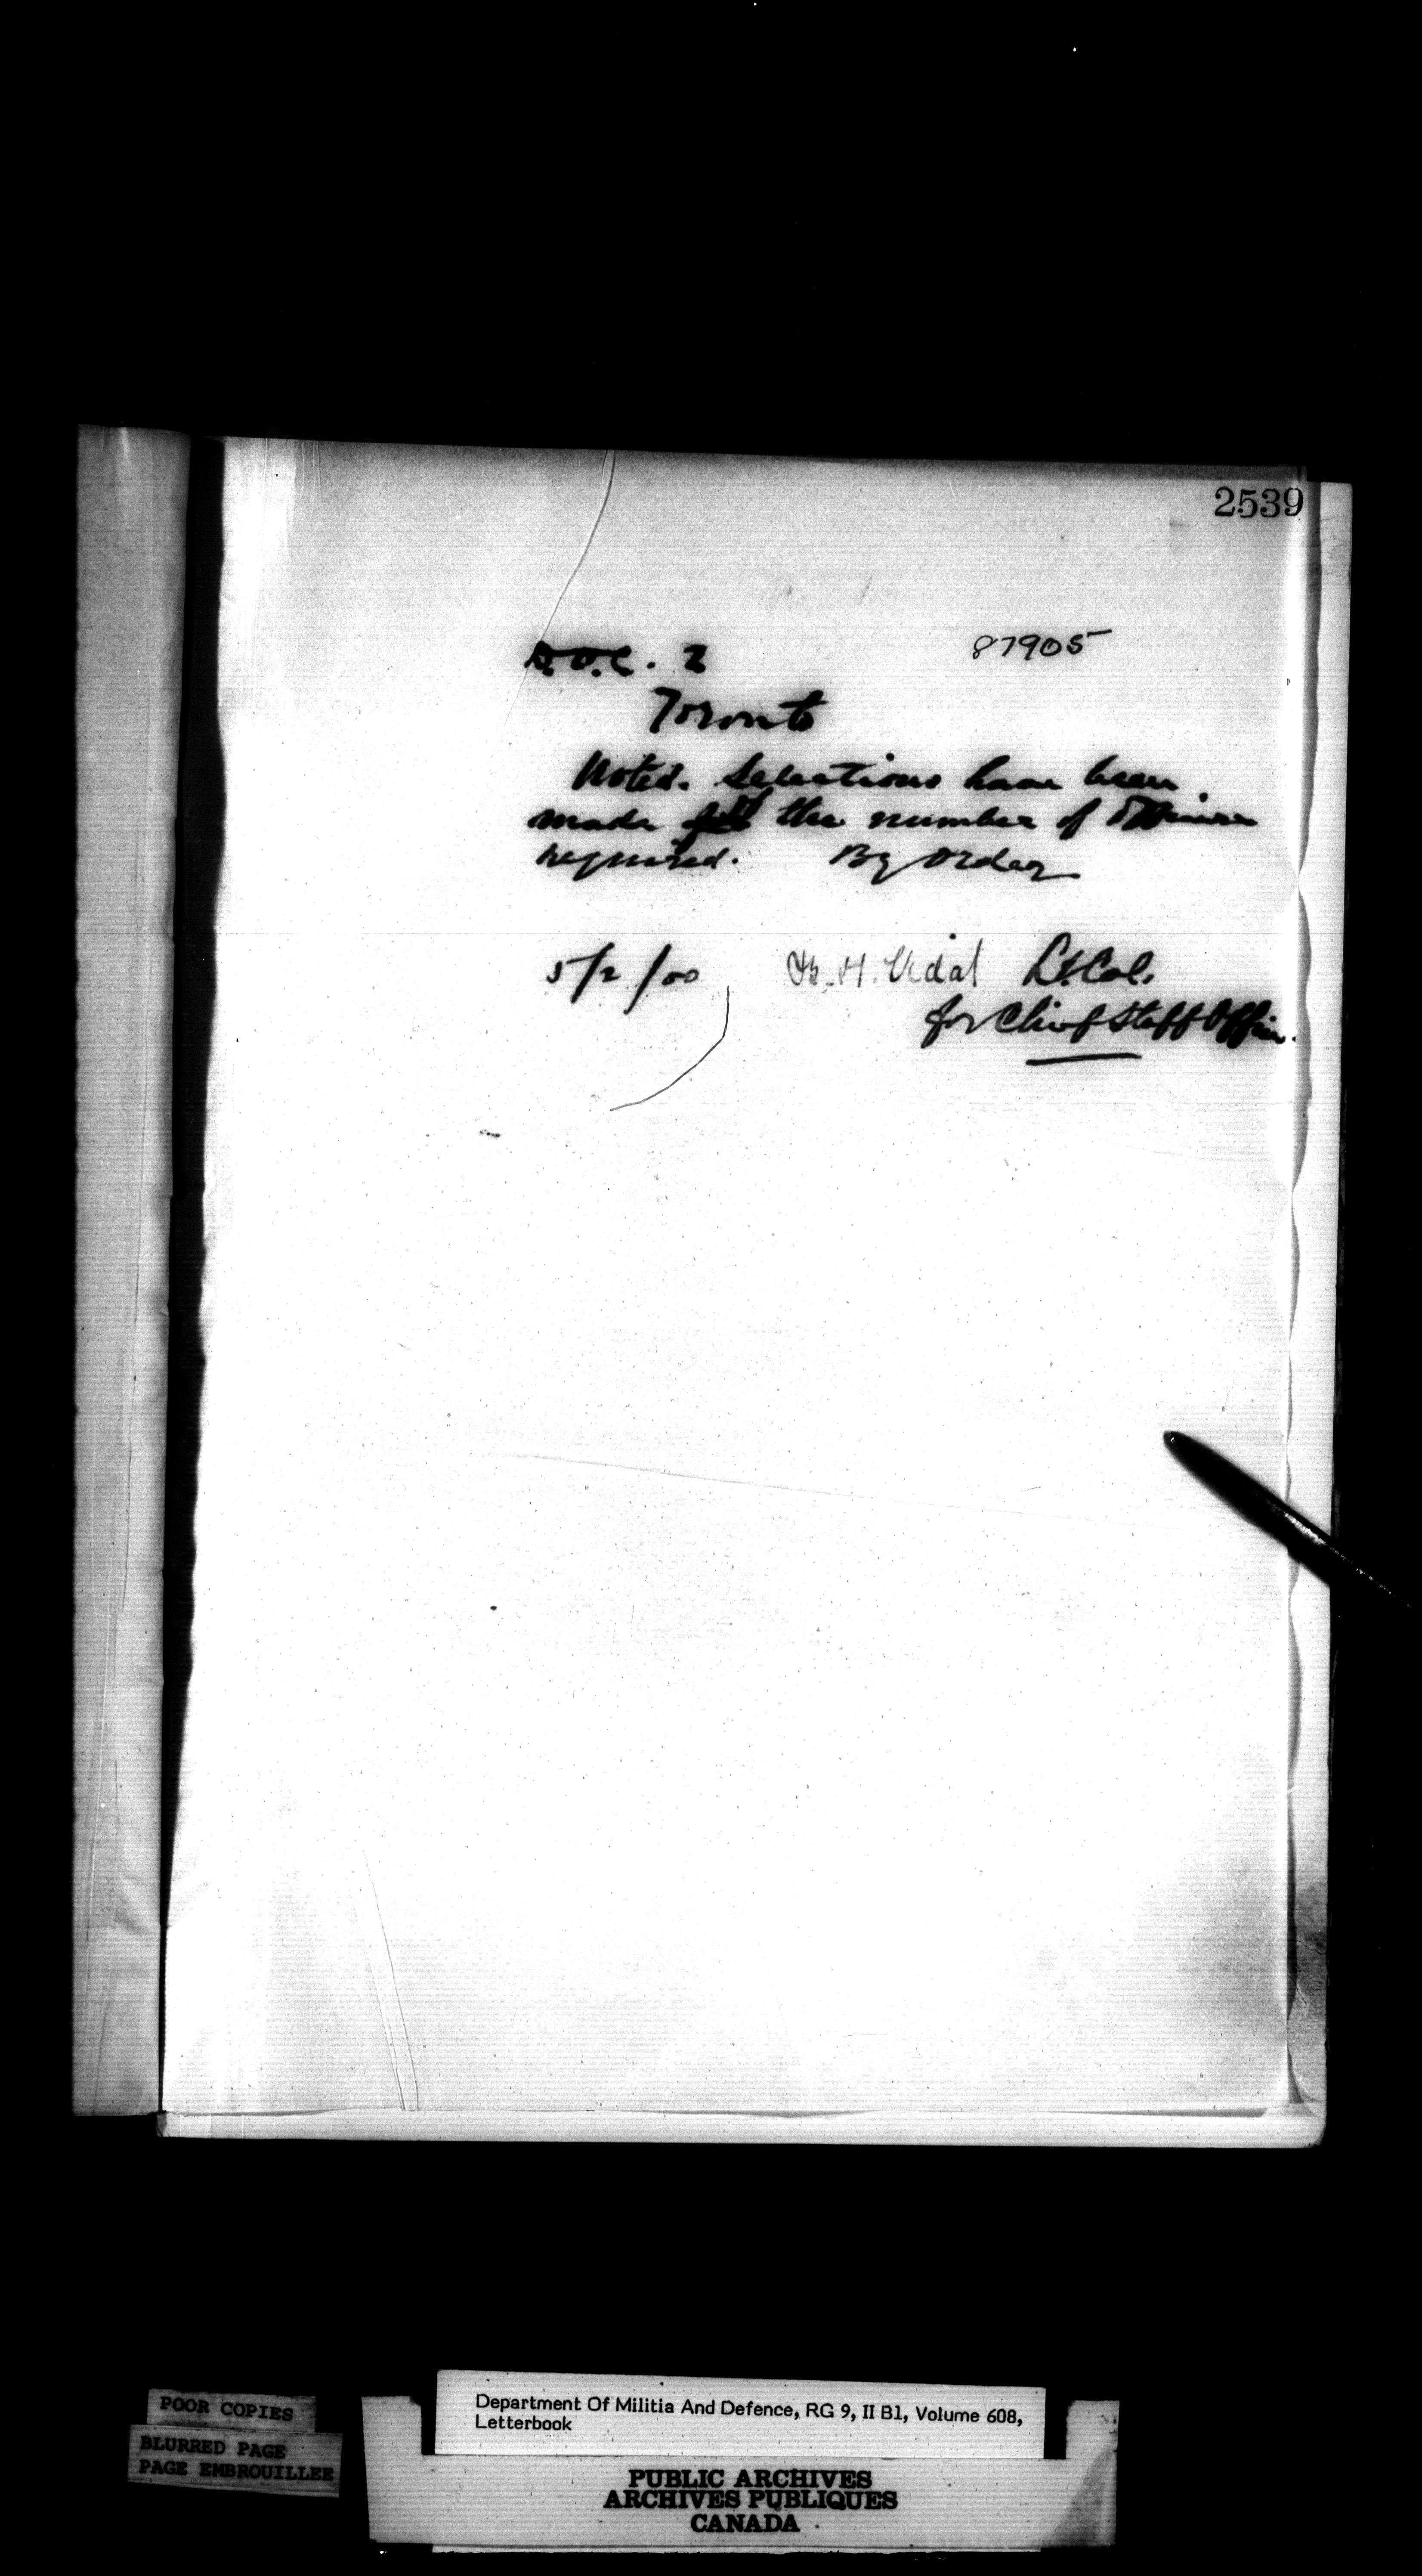 2539
87905
D.O.C. 2
Toronto
Noted. Selections have been
made for the number of Officers
required. By Order
5/2/00 B. H. Vidal Lt. Col.
for Chief Staff Officer.
POOR COPIES
BLURRED PAGE
PAGE EMBROUILLEE
Department Of Militia And Defence, RG 9, II B1, Volume 608,
Letterbook
PUBLIC ARCHIVES
ARCHIVES PUBLIQUES
CANADA